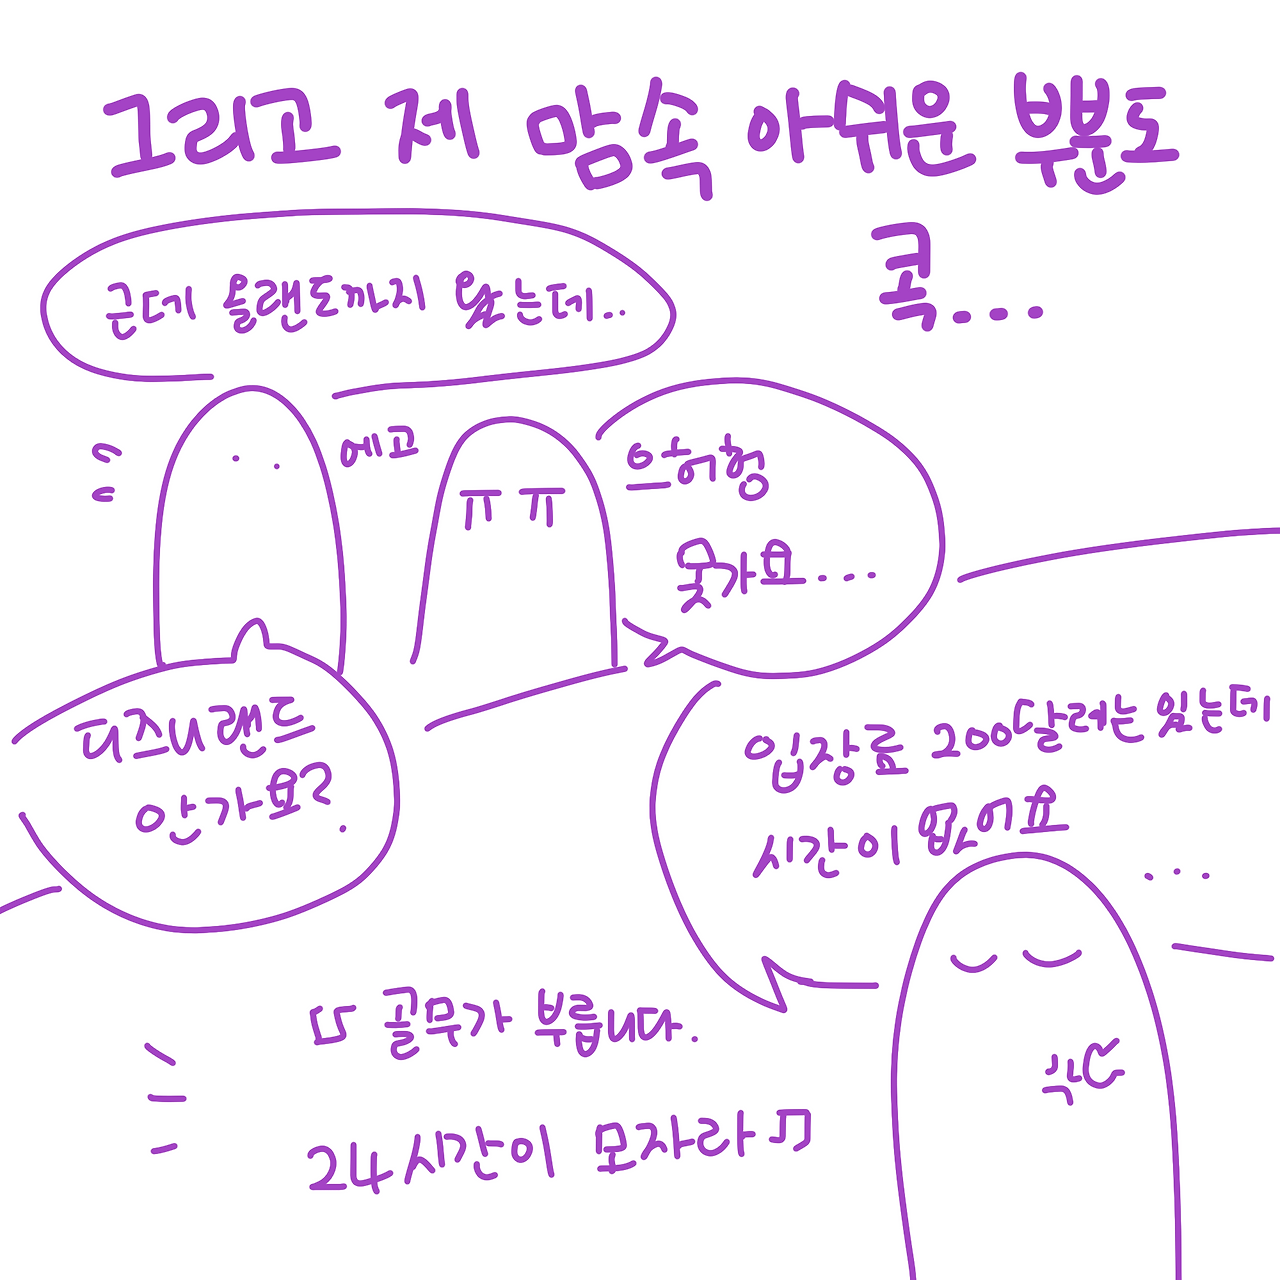 그리고 제 맘속 아쉬운 부분도
콕...
근데 올랜도까지 왔는데..
에고
ㅠㅠ
으허헝
못가요...
디즈니랜드
안가요?
입장료 200달러는 있는데
시간이 없어요
...
쓱
♫ 골무가 부릅니다.
24시간이 모자라 ♫